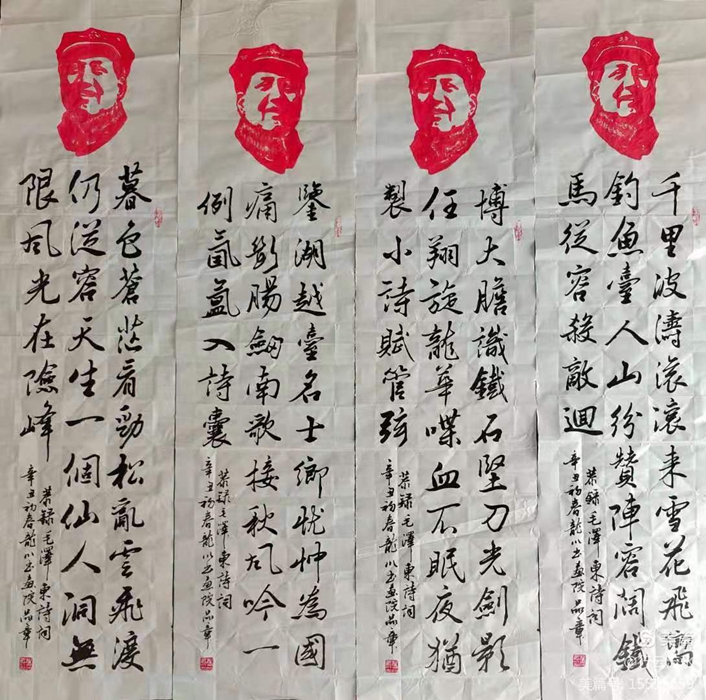 千里波濤滚滚来雪花飛嚮
釣魚臺人山纷贊陣容闊鐵
馬從容殺敵迴
恭録毛澤東詩詞
辛丑初春龍川书画院
博大膽識鐵石堅刀光劍影
任翔旋龍華喋血不眠夜猶
製小詩賦管弦
恭録毛澤東詩詞
辛丑初春龍川书画院
鑒湖越臺名士鄉忧忡為國
痛斷腸劍南歌接秋风吟一
例氤氲入詩囊
恭録毛澤東詩詞
辛丑初春龍川书画院
暮色蒼茫看勁松亂雲飛渡
仍從容天生一個仙人洞無
限风光在險峰
恭録毛澤東詩詞
辛丑初春龍川书画院
美篇号